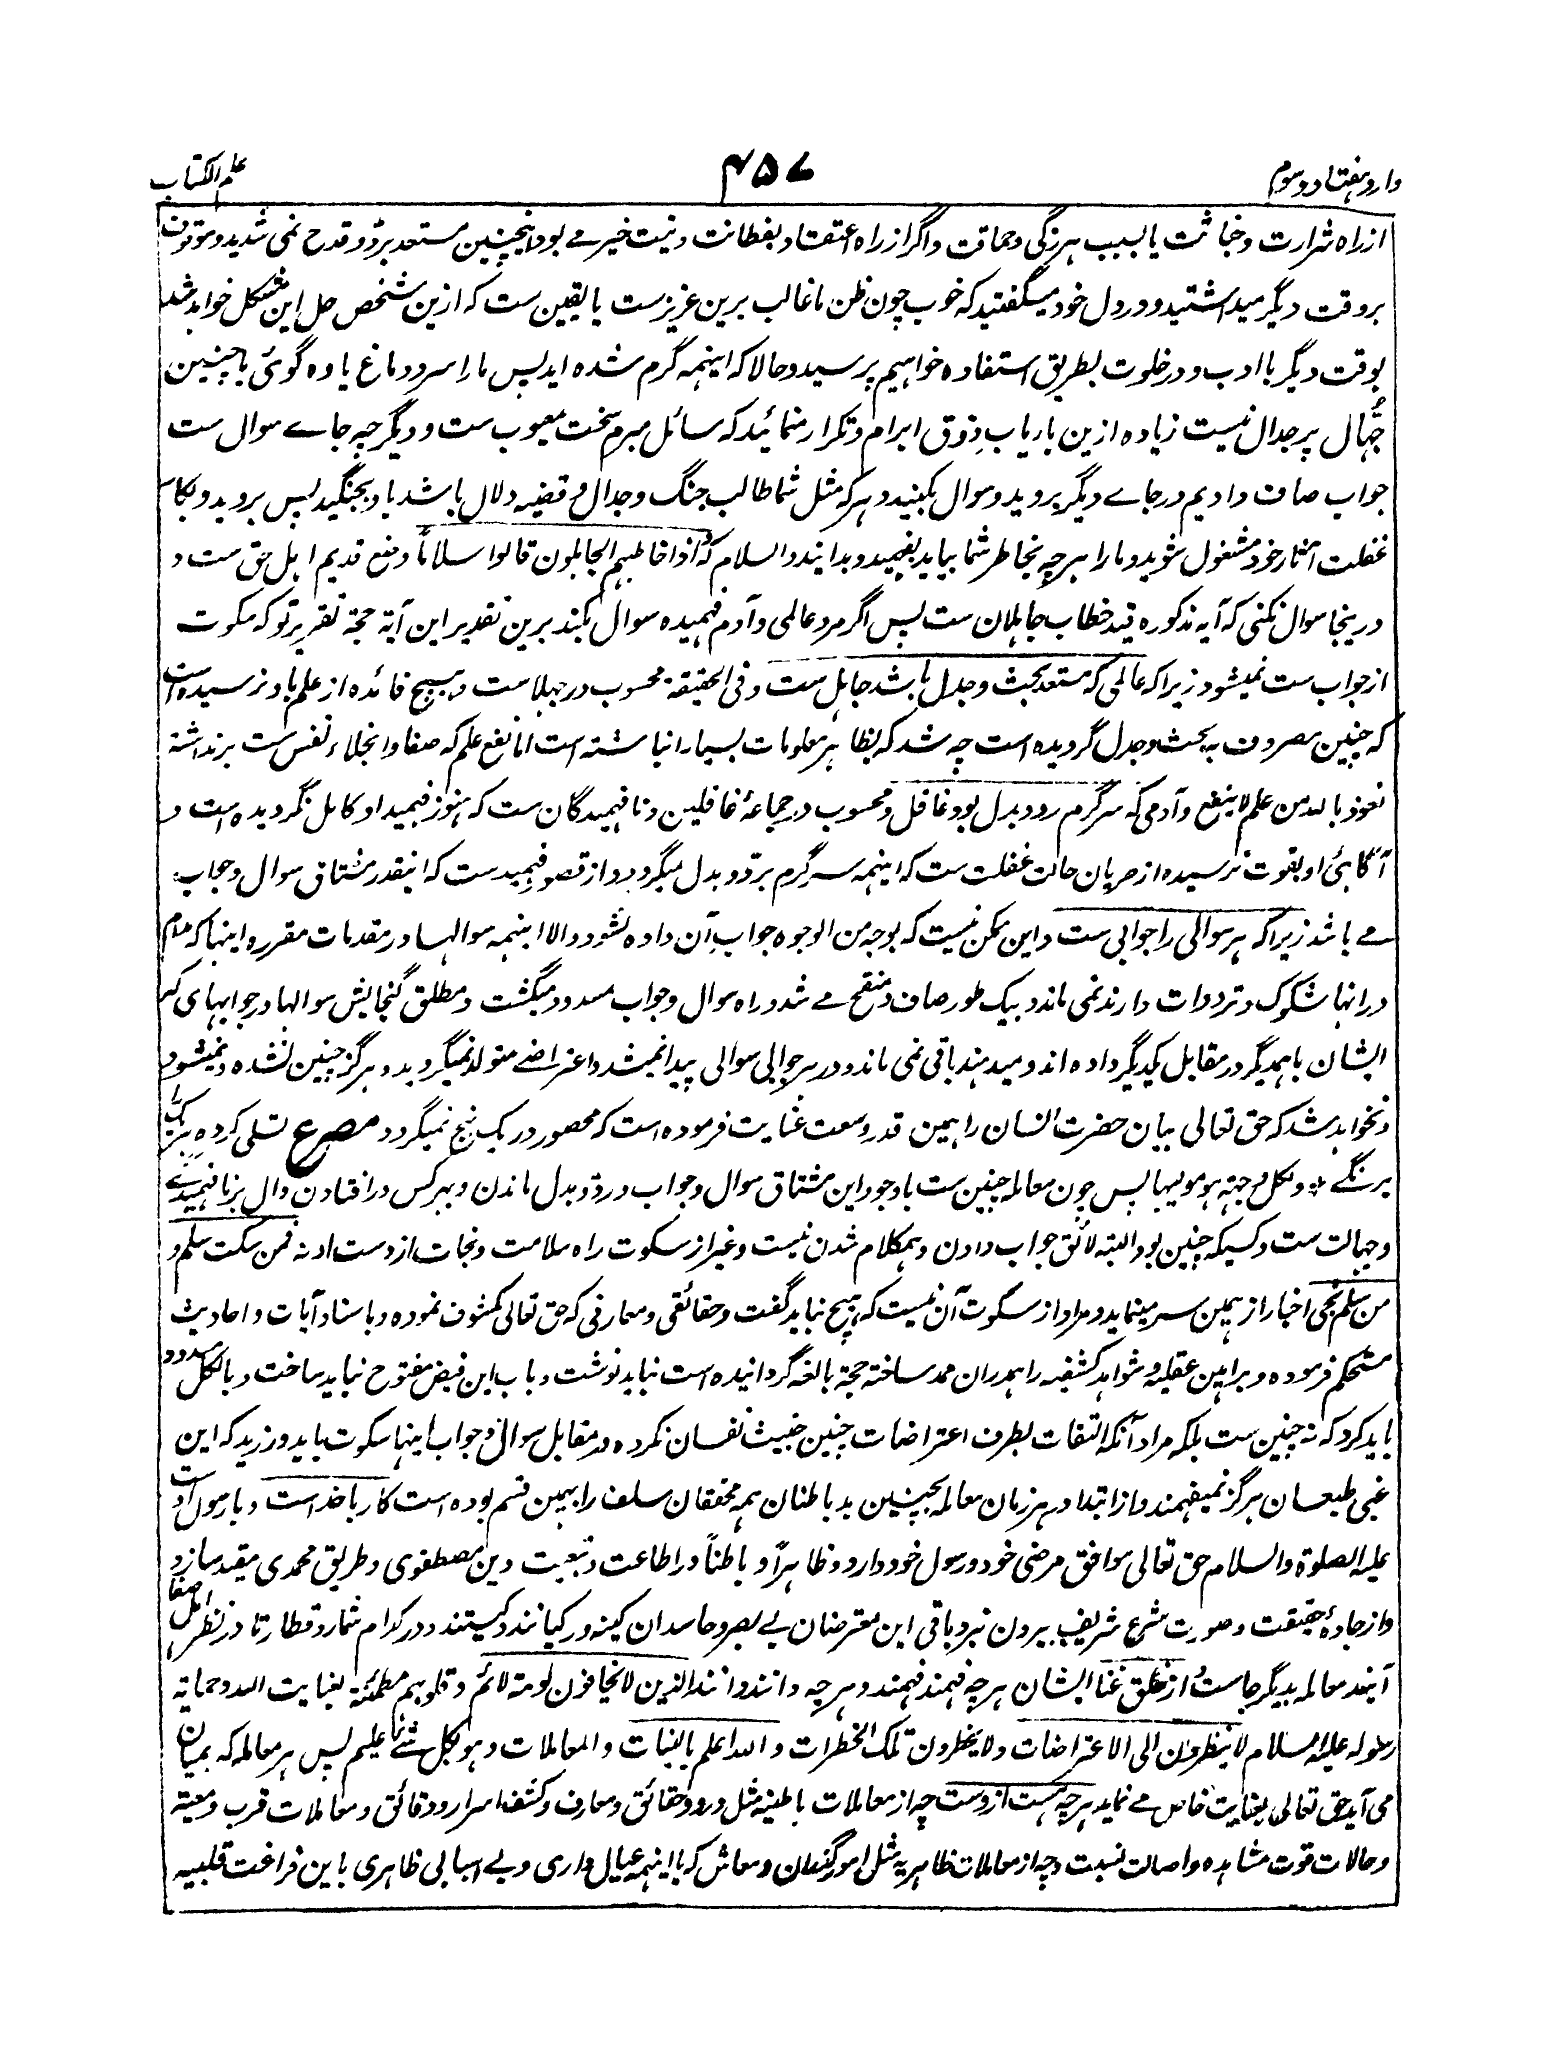 وارد هفتاد و سوم
۴۵۷
علم الکتاب
از راه شرارت و خباثت یا بسبب هرزگی و حماقت و اگر از راه اعتقاد و بفطانت و نیت خیر مے بود اینچنین مستعد بردّ و قدح نمی شدید و موقوف
بر وقت دیگر میداشتید و در دل خود میگفتید که خوب چون ظن ما غالب برین عزیز ست یا یقین ست که ازین شخص حل این مشکل خواهد شد
بوقت دیگر با ادب و در خلوت بطریق استفاده خواهیم پرسید و حالا که اینهمه گرم شده اید پس ما را سر و دماغ یاوه گوئی با چنین
جُهّال پر جدال نیست زیاده ازین باریاب ذوق ابرام و تکرار منمائید که سائل مبرم سخت معیوب ست و دیگر چه جاے سوال ست
جواب صاف دادیم در جاے دیگر بروید و سوال بکنید و هر که مثل شما طالب جنگ و جدال و قضیه دلال باشد باو بجنگید پس بروید و بکار
غفلت آثار خود مشغول شوید و ما را هر چه بخاطر شما بیاید بفهمید و بدانید والسلام که و اذا خاطبهم الجاهلون قالوا سلاماً وضع قدیم اهل حق ست و
درینجا سوال نکنی که آیه مذکوره قید خطاب جاهلان ست پس اگر مرد عالمی و آدم فهمیده سوال بکند برین تقدیر این آیة حجة تقریر تو که سکوت
از جواب ست نمیشود زیرا که عالمی که مستعد بحث و جدل باشد جاهل ست و فی الحقیقة محسوب در جهلاست و هیچ فائده از علم باو نرسیده است
که چنین مصروف به بحث و جدل گردیده است چه شد که بظاهر معلومات بسیار انباشته است اما نفع علم که صفا و انجلاء نفس ست برنداشته
نعوذ بالله من علم لا ینفع و آدمی که سرگرم رد و بدل بود غافل و محسوب در جماعهٔ غافلین و نافهمیدگان ست که هنوز فهمید او کامل نگردیده است و
آگاهئ او بقوت نرسیده از جریان حالت غفلت ست که اینهمه سرگرم بردّ و بدل میگردد و از قصور فهمید ست که اینقدر مشتاق سوال و جواب
مے باشد زیرا که هر سوالی را جوابی ست و این ممکن نیست که بوجه من الوجوه جواب آن داده نشود والا اینهمه سوالها در مقدمات مقرره اینها که مردم
در انها شکوک و ترددات دارند نمی ماند و بیک طور صاف و منقح مے شد و راه سوال و جواب مسدود میگشت و مطلق گنجایش سوالها و جوابهای که
ایشان باهمدیگر در مقابل یکدیگر داده اند و میدهند باقی نمی ماند و در هر جوابی سوالی پیدا نمیشد و اعتراضے متولد نمیگردید و هرگز چنین نشده و نمیشود
و نخواهد شد که حق تعالی بیان حضرت انسان را همین قدر وسعت عنایت فرموده است که محصور در یک نهج نمیگردد مصرع تسلی کرده هر یک را
برنگے * ولکل وجهة هو مولیها پس چون معامله چنین ست باوجود این مشتاق سوال و جواب و ردّ و بدل ماندن و بهر کس درافتادن دال بر نافهمیدگے
و جهالت ست و کسیکه چنین بود البته لائق جواب دادن و همکلام شدن نیست و غیر از سکوت راه سلامت و نجات از دست او نه فمن سکت سلم و
من سلم نجی اخبار از همین سر مینماید و مراد از سکوت آن نیست که هیچ نباید گفت و حقائقی و معارفی که حق تعالی مکشوف نموده و باسناد آیات و احادیث
مستحکم فرموده و براهین عقلیه و شواهد کشفیه را همدران ممد ساخته حجة بالغه گردانیده است نباید نوشت و باب این فیض مفتوح نباید ساخت و بالکل مسدود
باید کرد که نه چنین ست بلکه مراد آنکه التفات بطرف اعتراضات چنین خبیث نفسان نکرده در مقابل سوال و جواب اینها سکوت باید ورزید که این
غبی طبعان هرگز نمیفهمند و از ابتدا در هر زمان معامله بچنین بد باطنان همه محققان سلف را بهمین قسم بوده است کار با خداست و با رسول اوست
علیه الصلوة والسلام حق تعالی موافق مرضی خود و رسول خود دارد و ظاهراً و باطناً در اطاعت و تبعیت دین مصطفوی و طریق محمدی مقید سازد و
و از جادهٔ حقیقت و صورت شرع شریف بیرون نبرد باقی این معترضان بے بصر و حاسدان کینه ور کیانند و کیستند و در کدام شمار و قطار تا در نظر اهل صفا
آیند معامله بدیگر جاست و از خلق غنا ایشان هر چه فهمند فهمند و هر چه دانند دانند الذین لا یخافون لومة لائم و قلوبهم مطمئنة بعنایت الله و حمایة
رسوله علیه السلام لا ینظرون الی الاعتراضات ولا یخطرون تلک الخطرات والله اعلم بالنیات والمعاملات وهو بکل شئ علیم پس هر معامله که بمیان
می آید حق تعالی بعنایت خاص مے نماید هر چه هست ازوست چه از معاملات باطنیه مثل ورود حقائق و معارف و کشف اسرار و دقائق و معاملات قرب و معیة
و حالات قوت مشاهده و اصالت نسبت و چه از معاملات ظاهریه مثل امور گذران و معاش که با اینهمه عیال داری و بے اسبابی ظاهری باین فراغت قلبیه